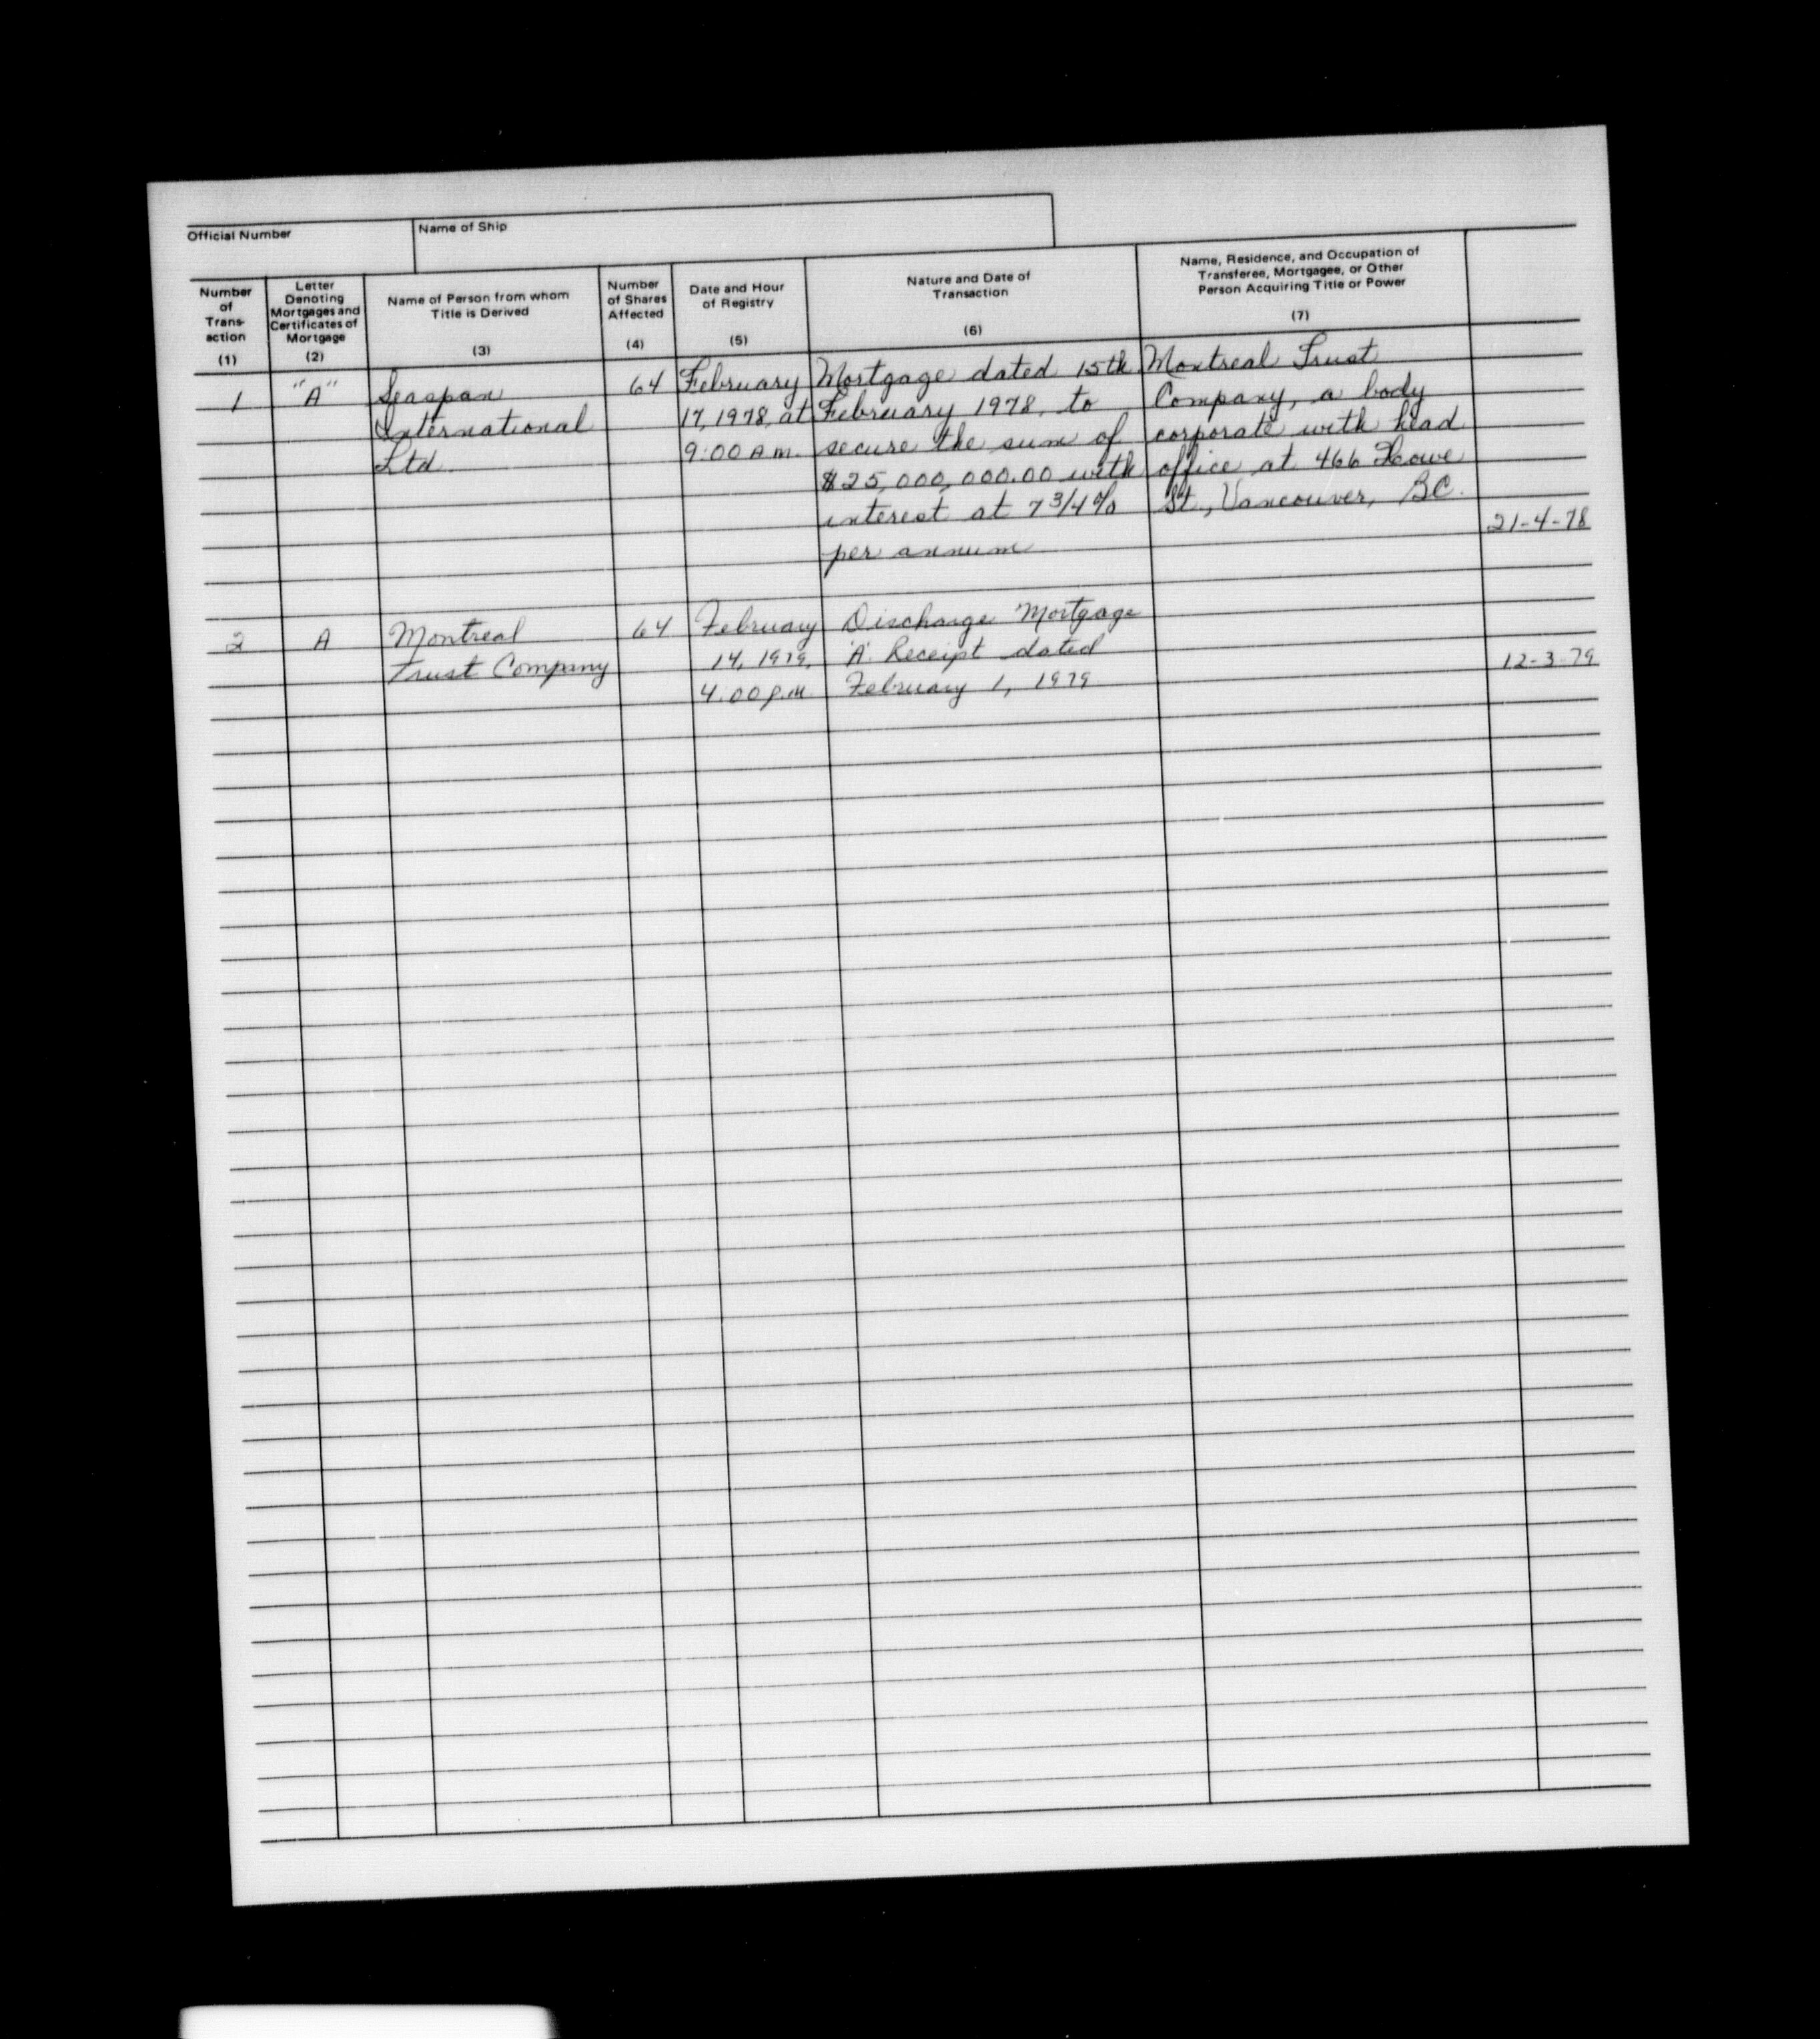 Official Number
Name of Ship
Number of Transaction (1)
Letter Denoting Mortgages and Certificates of Mortgage (2)
Name of Person from whom Title is Derived (3)
Number of Shares Affected (4)
Date and Hour of Registry (5)
Nature and Date of Transaction (6)
Name, Residence, and Occupation of Transferee, Mortgagee, or Other Person Acquiring Title or Power (7)
1 "A" Seaspan 64 February Mortgage dated 15th Montreal Trust
International 17, 1978, at February 1978, to Company, a body
Ltd. 9:00 A.M. secure the sum of corporate with head
$25,000,000.00 with office at 466 Howe
interest at 7 3/4% St., Vancouver, BC.
per annum 21-4-78
2 A Montreal 64 February Discharge Mortgage
Trust Company 14, 1979, "A". Receipt dated 12-3-79
4.00 p.m. February 1, 1979